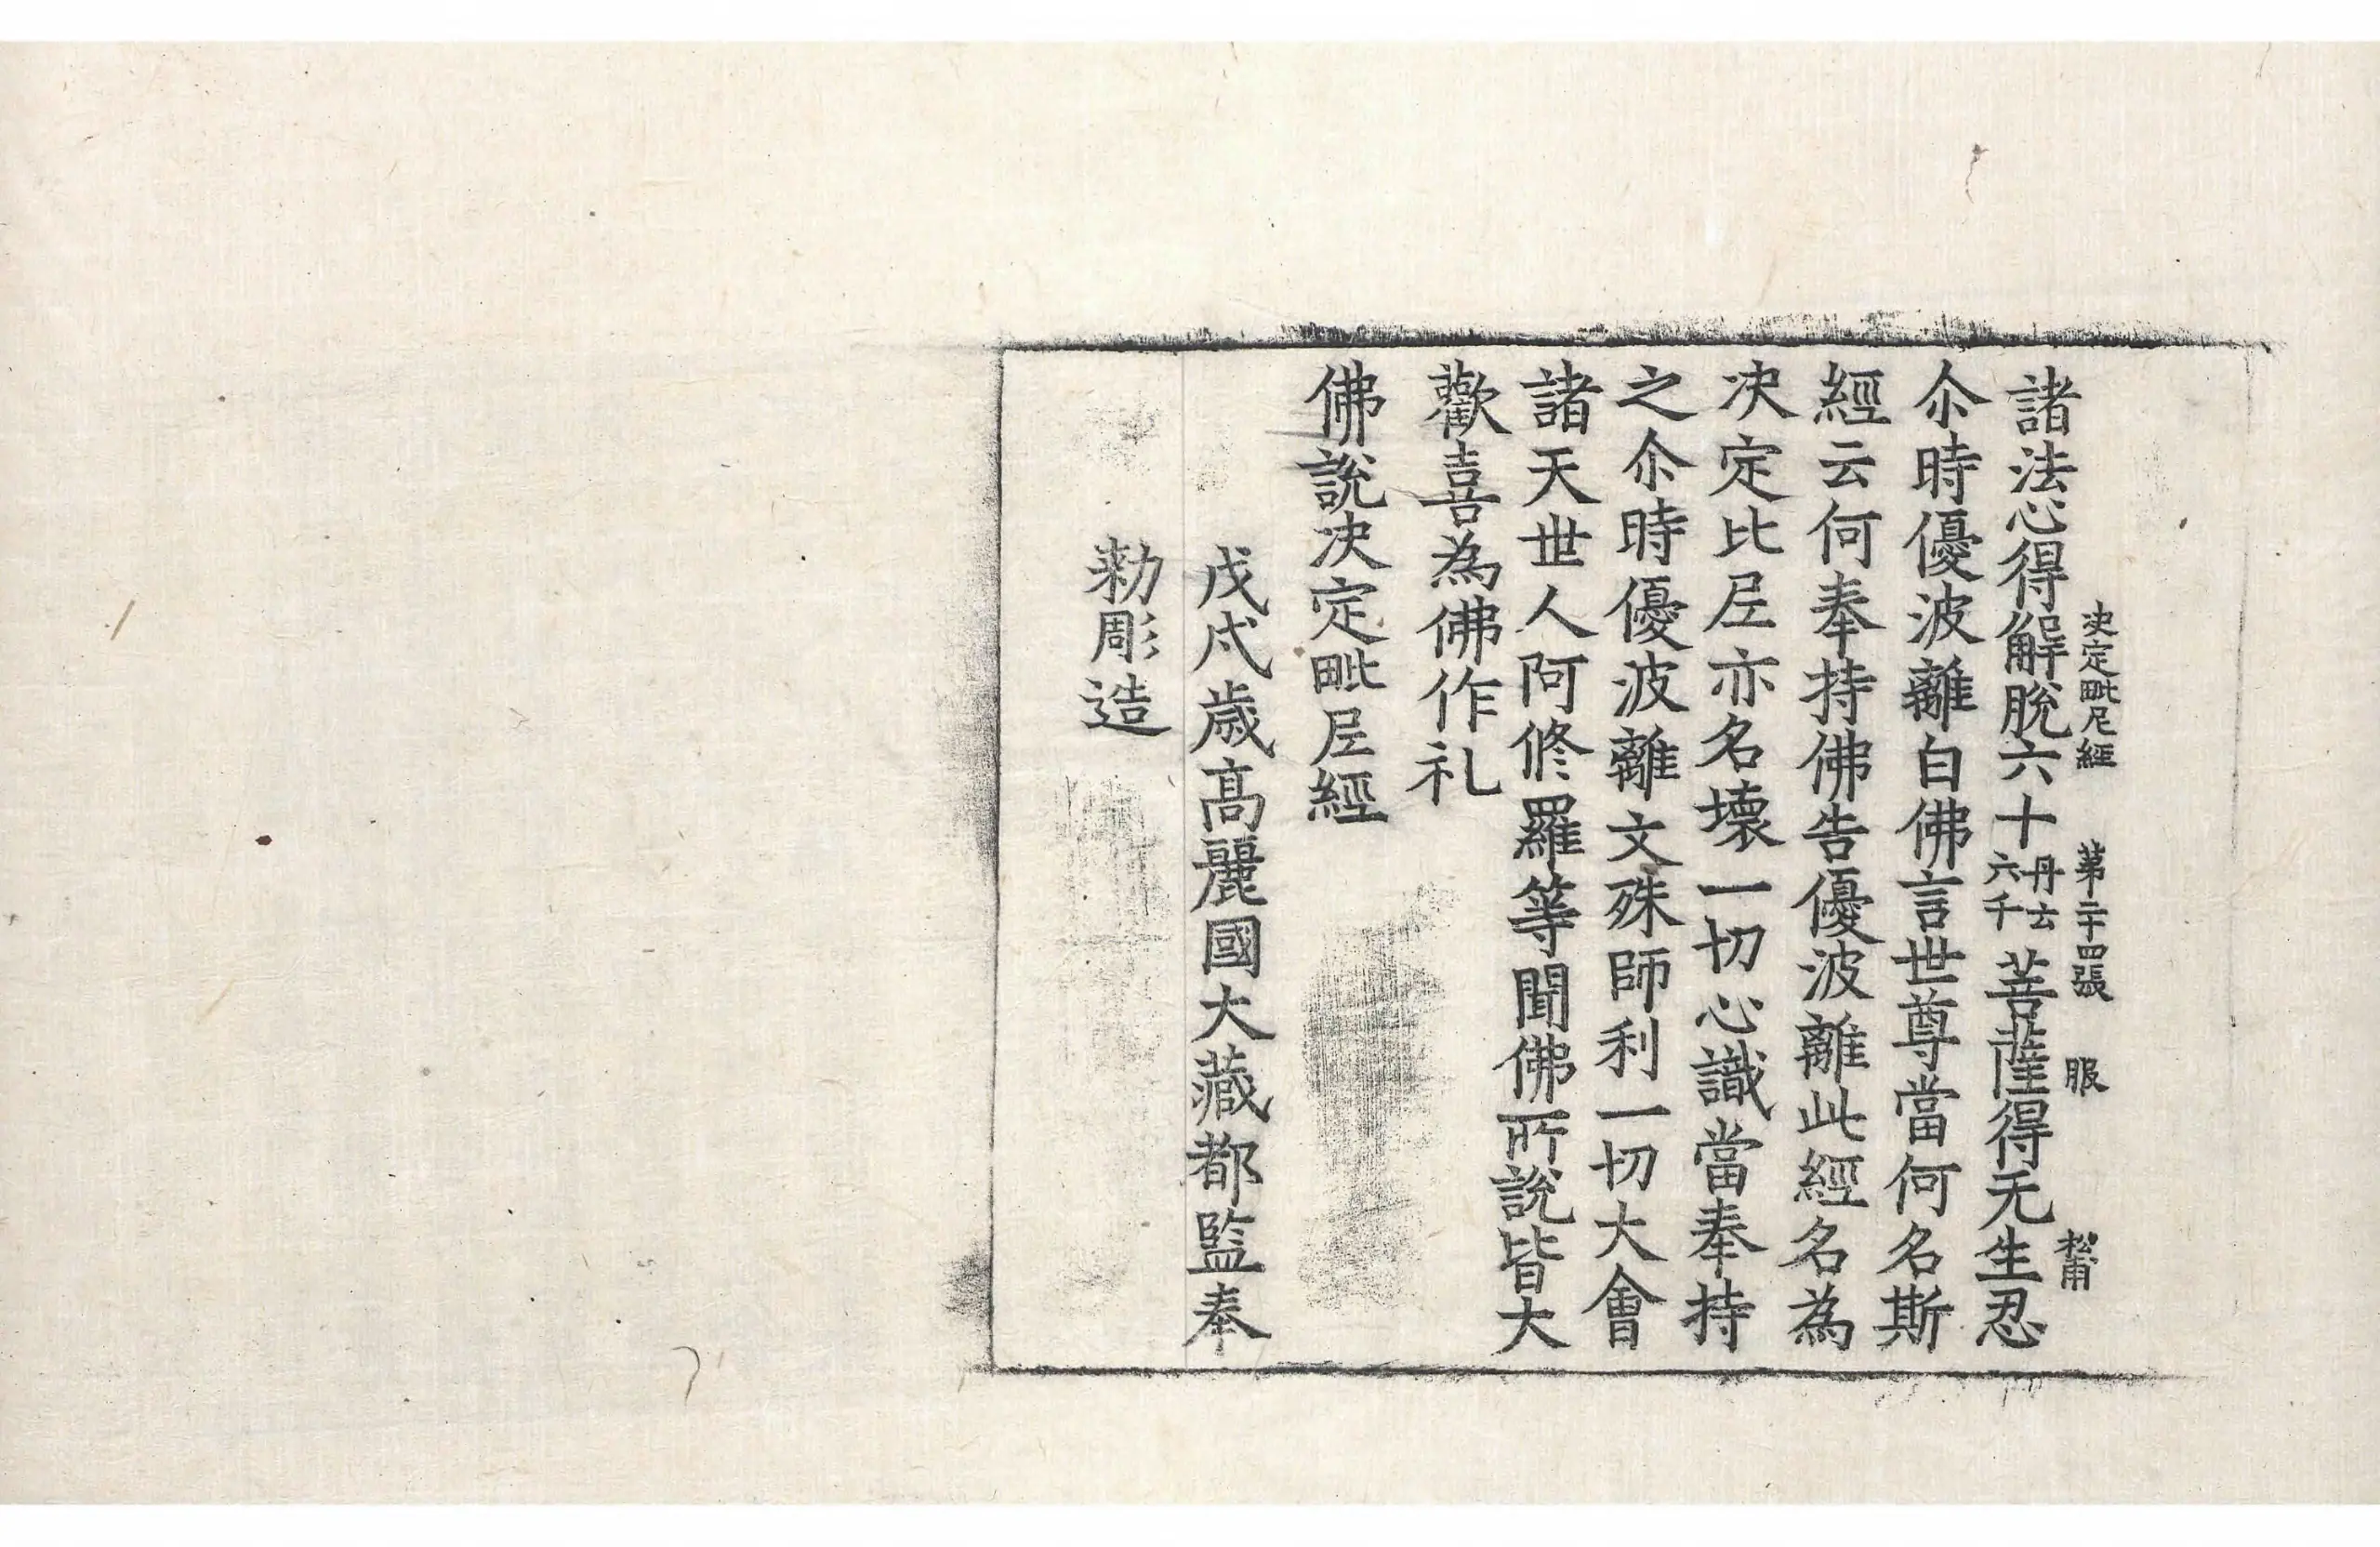 决定毗尼經 第二十四張 服 松甫
諸法心得解脫六十丹云六千菩薩得无生忍
尒時優波離白佛言世尊當何名斯
經云何奉持佛告優波離此經名為
决定比尼亦名壞一切心識當奉持
之尒時優波離文殊師利一切大會
諸天世人阿修羅等聞佛所說皆大
歡喜為佛作礼
佛說决定毗尼經
戊戌歲高麗國大藏都監奉
勅彫造